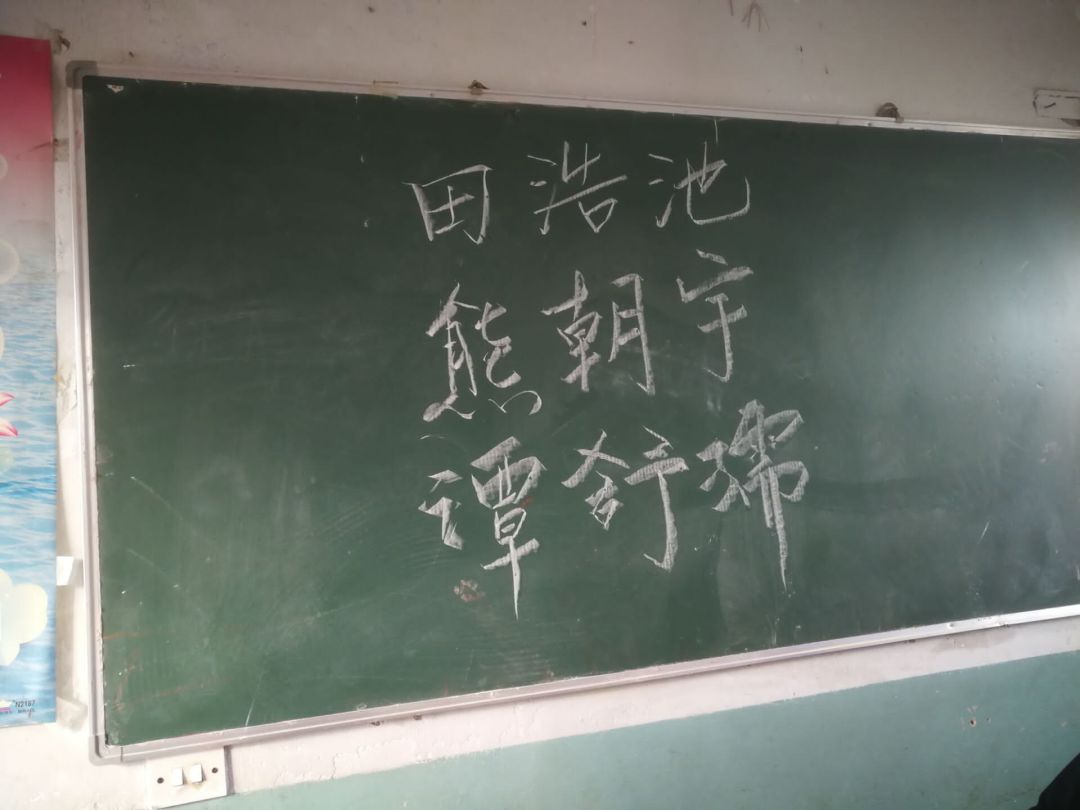 田浩池
熊朝宇
谭舒
N2187